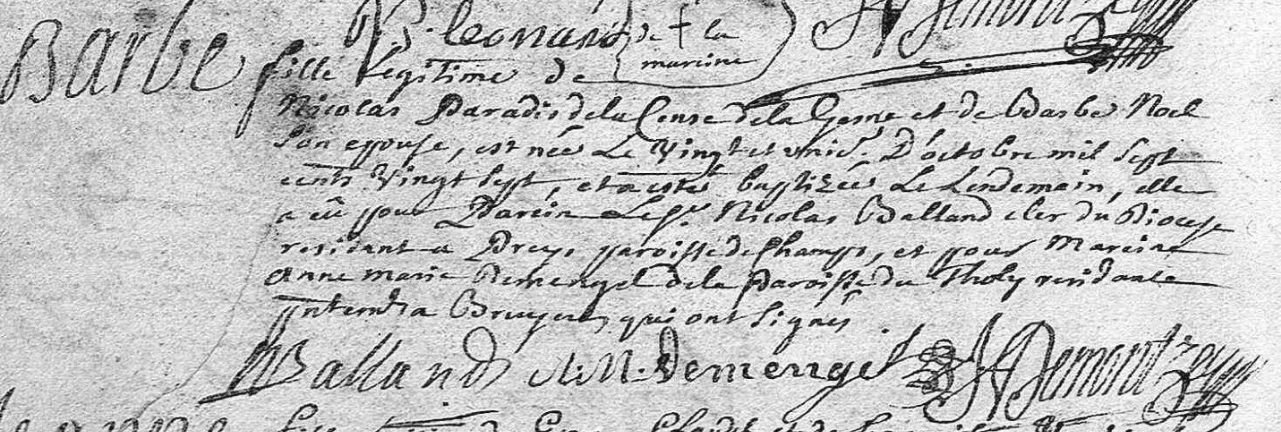 B. leonard de † la
mareine
Barbe fille legitime de
Nicolas Paradis de la Cense de la Gerne et de Barbe Noel
son epouse, est née Le Vingt et unie. D'octobre mil sept
cents Vingt sept, et a esté baptizée Le Lendemain, elle
a eü pour Parein Le Sr. Nicolas Balland cler du Diocese
residant a Preys paroisse de Champs, et pour Mareine
anne marie Demengel de la Paroisse du Tholy residante
a Bruyere, qui ont signés
Balland A: M: Demengel
fille